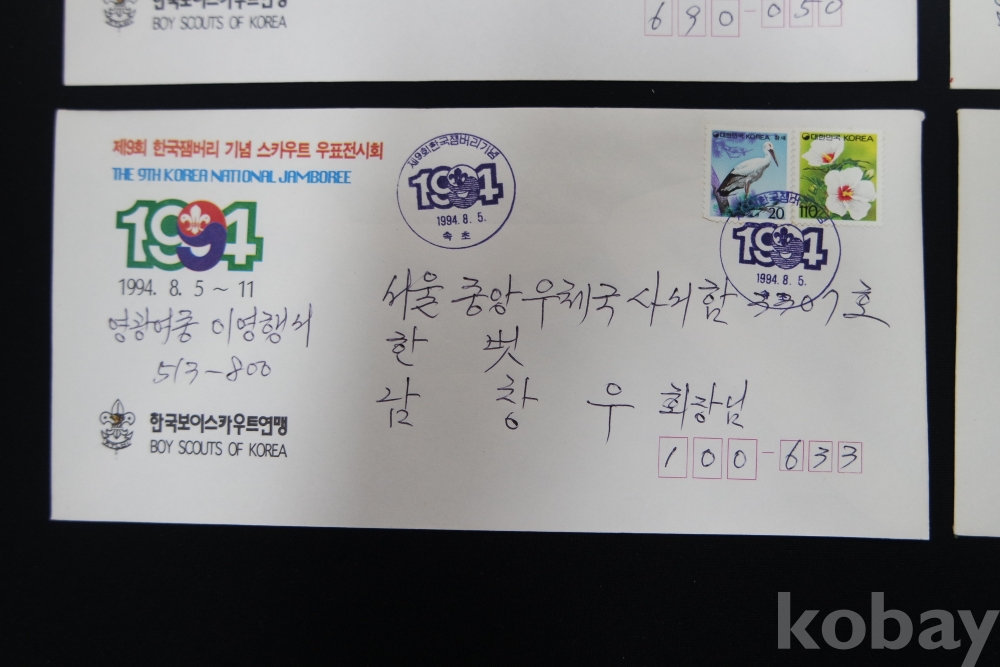 한국보이스카우트연맹
BOY SCOUTS OF KOREA
690-050
제9회 한국잼버리 기념 스카우트 우표전시회
THE 9TH KOREA NATIONAL JAMBOREE
1994
1994. 8. 5 ~ 11
영광여중 이영행쇠
513-800
한국보이스카우트연맹
BOY SCOUTS OF KOREA
제9회한국잼버리기념
1994
1994. 8. 5.
속초
대한민국 KOREA 황새
20
대한민국 KOREA
110
1994
1994. 8. 5.
서울 중앙우체국 사서함 호
한 벗
창 우 회장님
100-633
kobay